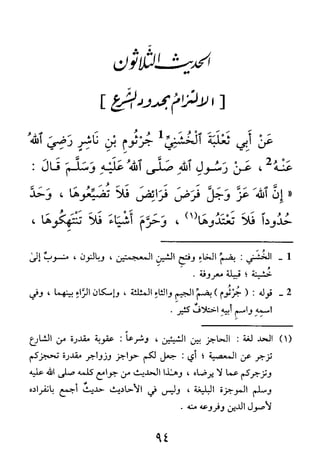 الحديث الثلاثون
[ الالتزام بحدود الشرع ]
عَنْ أَبِي ثَعْلَبَةَ الْخُشَنِيِّ1 جُرْثُومِ بْنِ نَاشِرٍ رَضِيَ اللهُ
عَنْهُ2 ، عَنْ رَسُولِ اللهِ صَلَّى اللهُ عَلَيْهِ وَسَلَّمَ قَالَ :
« إِنَّ اللهَ عَزَّ وَجَلَّ فَرَضَ فَرَائِضَ فَلَا تُضَيِّعُوهَا ، وَحَدَّ
حُدُوداً فَلَا تَعْتَدُوهَا(١) ، وَحَرَّمَ أَشْيَاءَ فَلَا تَنْتَهِكُوهَا ،
1 - الخُشَني : بضمِّ الخاءِ وفتحِ الشينِ المعجمتينِ ، وبالنون ، منسوبٌ إلىٰ
خُشينة ؛ قبيلة معروفة .
2 - قوله : ( جُرْثُوم ) بضمِّ الجيم والثاءِ المثلثة ، وإسكان الرَّاءِ بينهما ، وفي
اسمِهِ واسمِ أبيهِ اختلافٌ كثير .
(١) الحد لغة : الحاجز بين الشيئين ، وشرعاً : عقوبة مقدرة من الشارع
تزجر عن المعصية ؛ أي : جعل لكم حواجز وزواجر مقدرة تحجزكم
وتزجركم عما لا يرضاه ، وهٰذا الحديث من جوامع كلمه صلى الله عليه
وسلم الموجزة البليغة ، وليس في الأحاديث حديثٌ أجمع بانفراده
لأصول الدين وفروعه منه .
٩٤